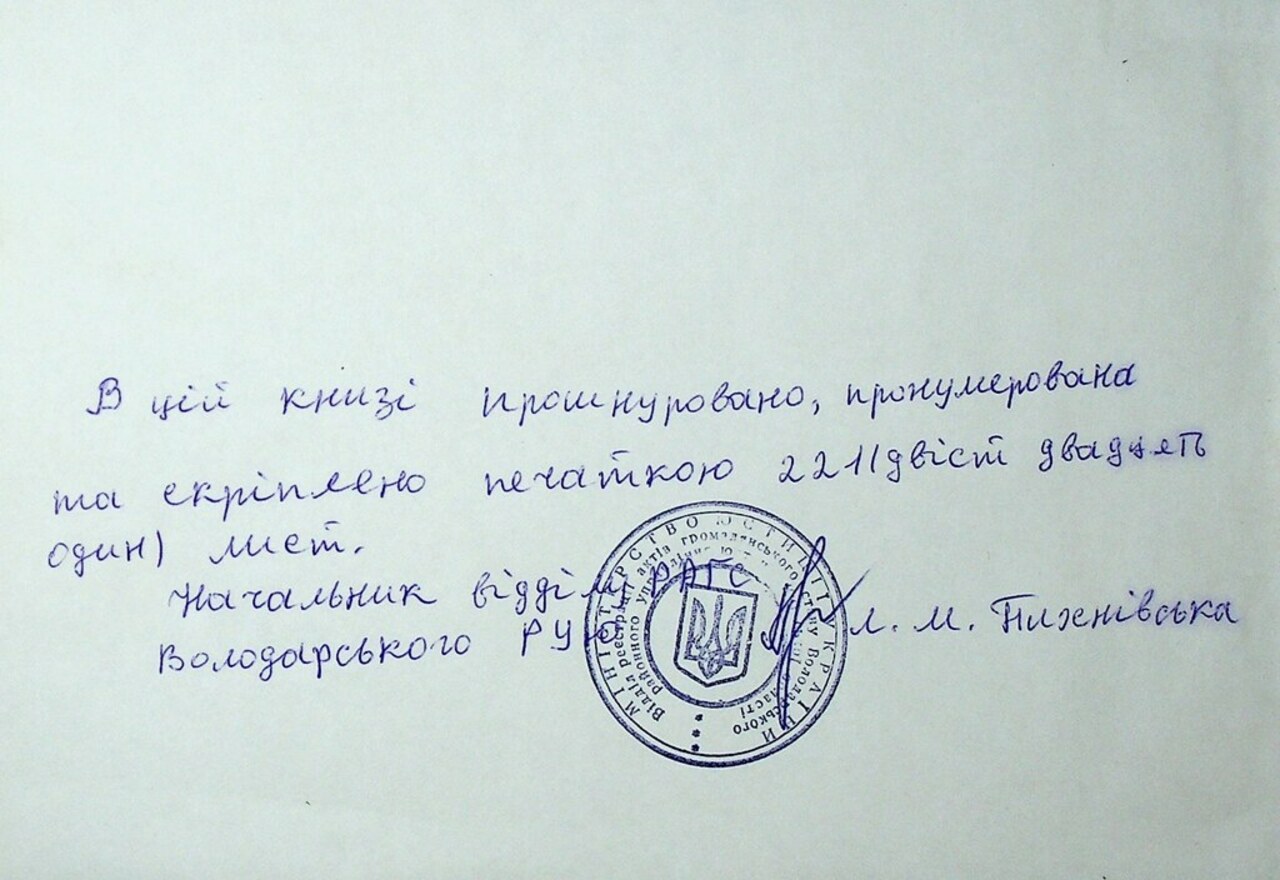 В цій книзі прошнуровано, пронумерована
та скріплено печаткою 221(двіст двадцять
один) лист.
Начальник відділу РАГС
Володарського РУЮ Л. М. Пихнівська
МІНІСТЕРСТВО ЮСТИЦІЇ УКРАЇНИ
Відділ реєстрації актів громадянського стану Володарського
районного управління юстиції області